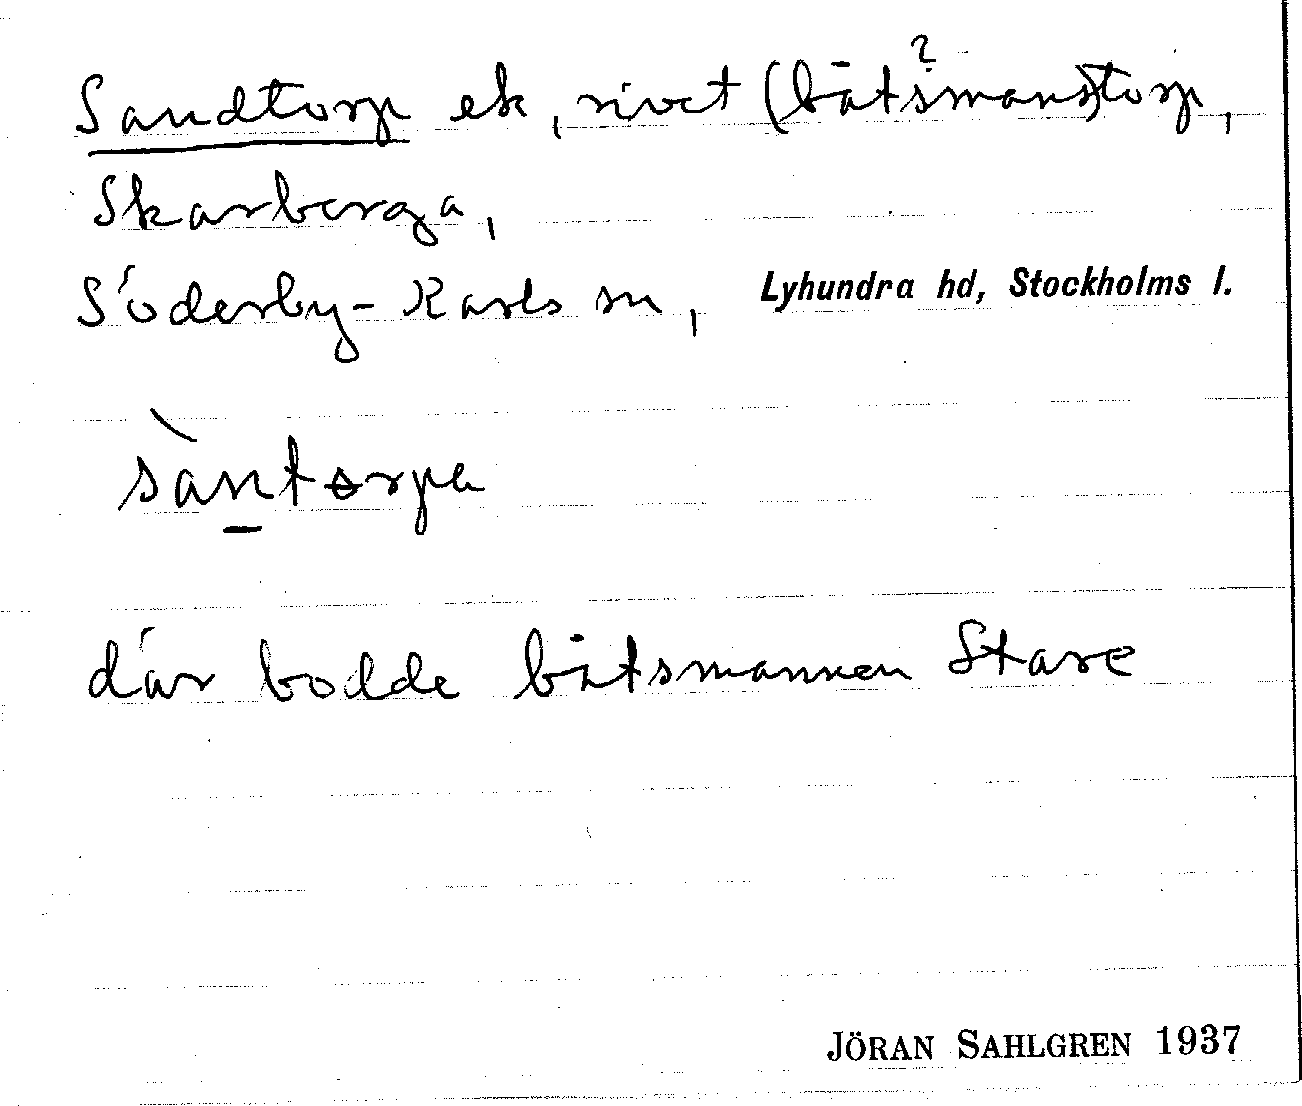 Sandtorp ek, rivet (båtsmans?)torp,
Skarberga,
Söderby-Karls sn, Lyhundra hd, Stockholms l.
sàntɵrpa
där bodde båtsmannen Stare
JÖRAN SAHLGREN 1937